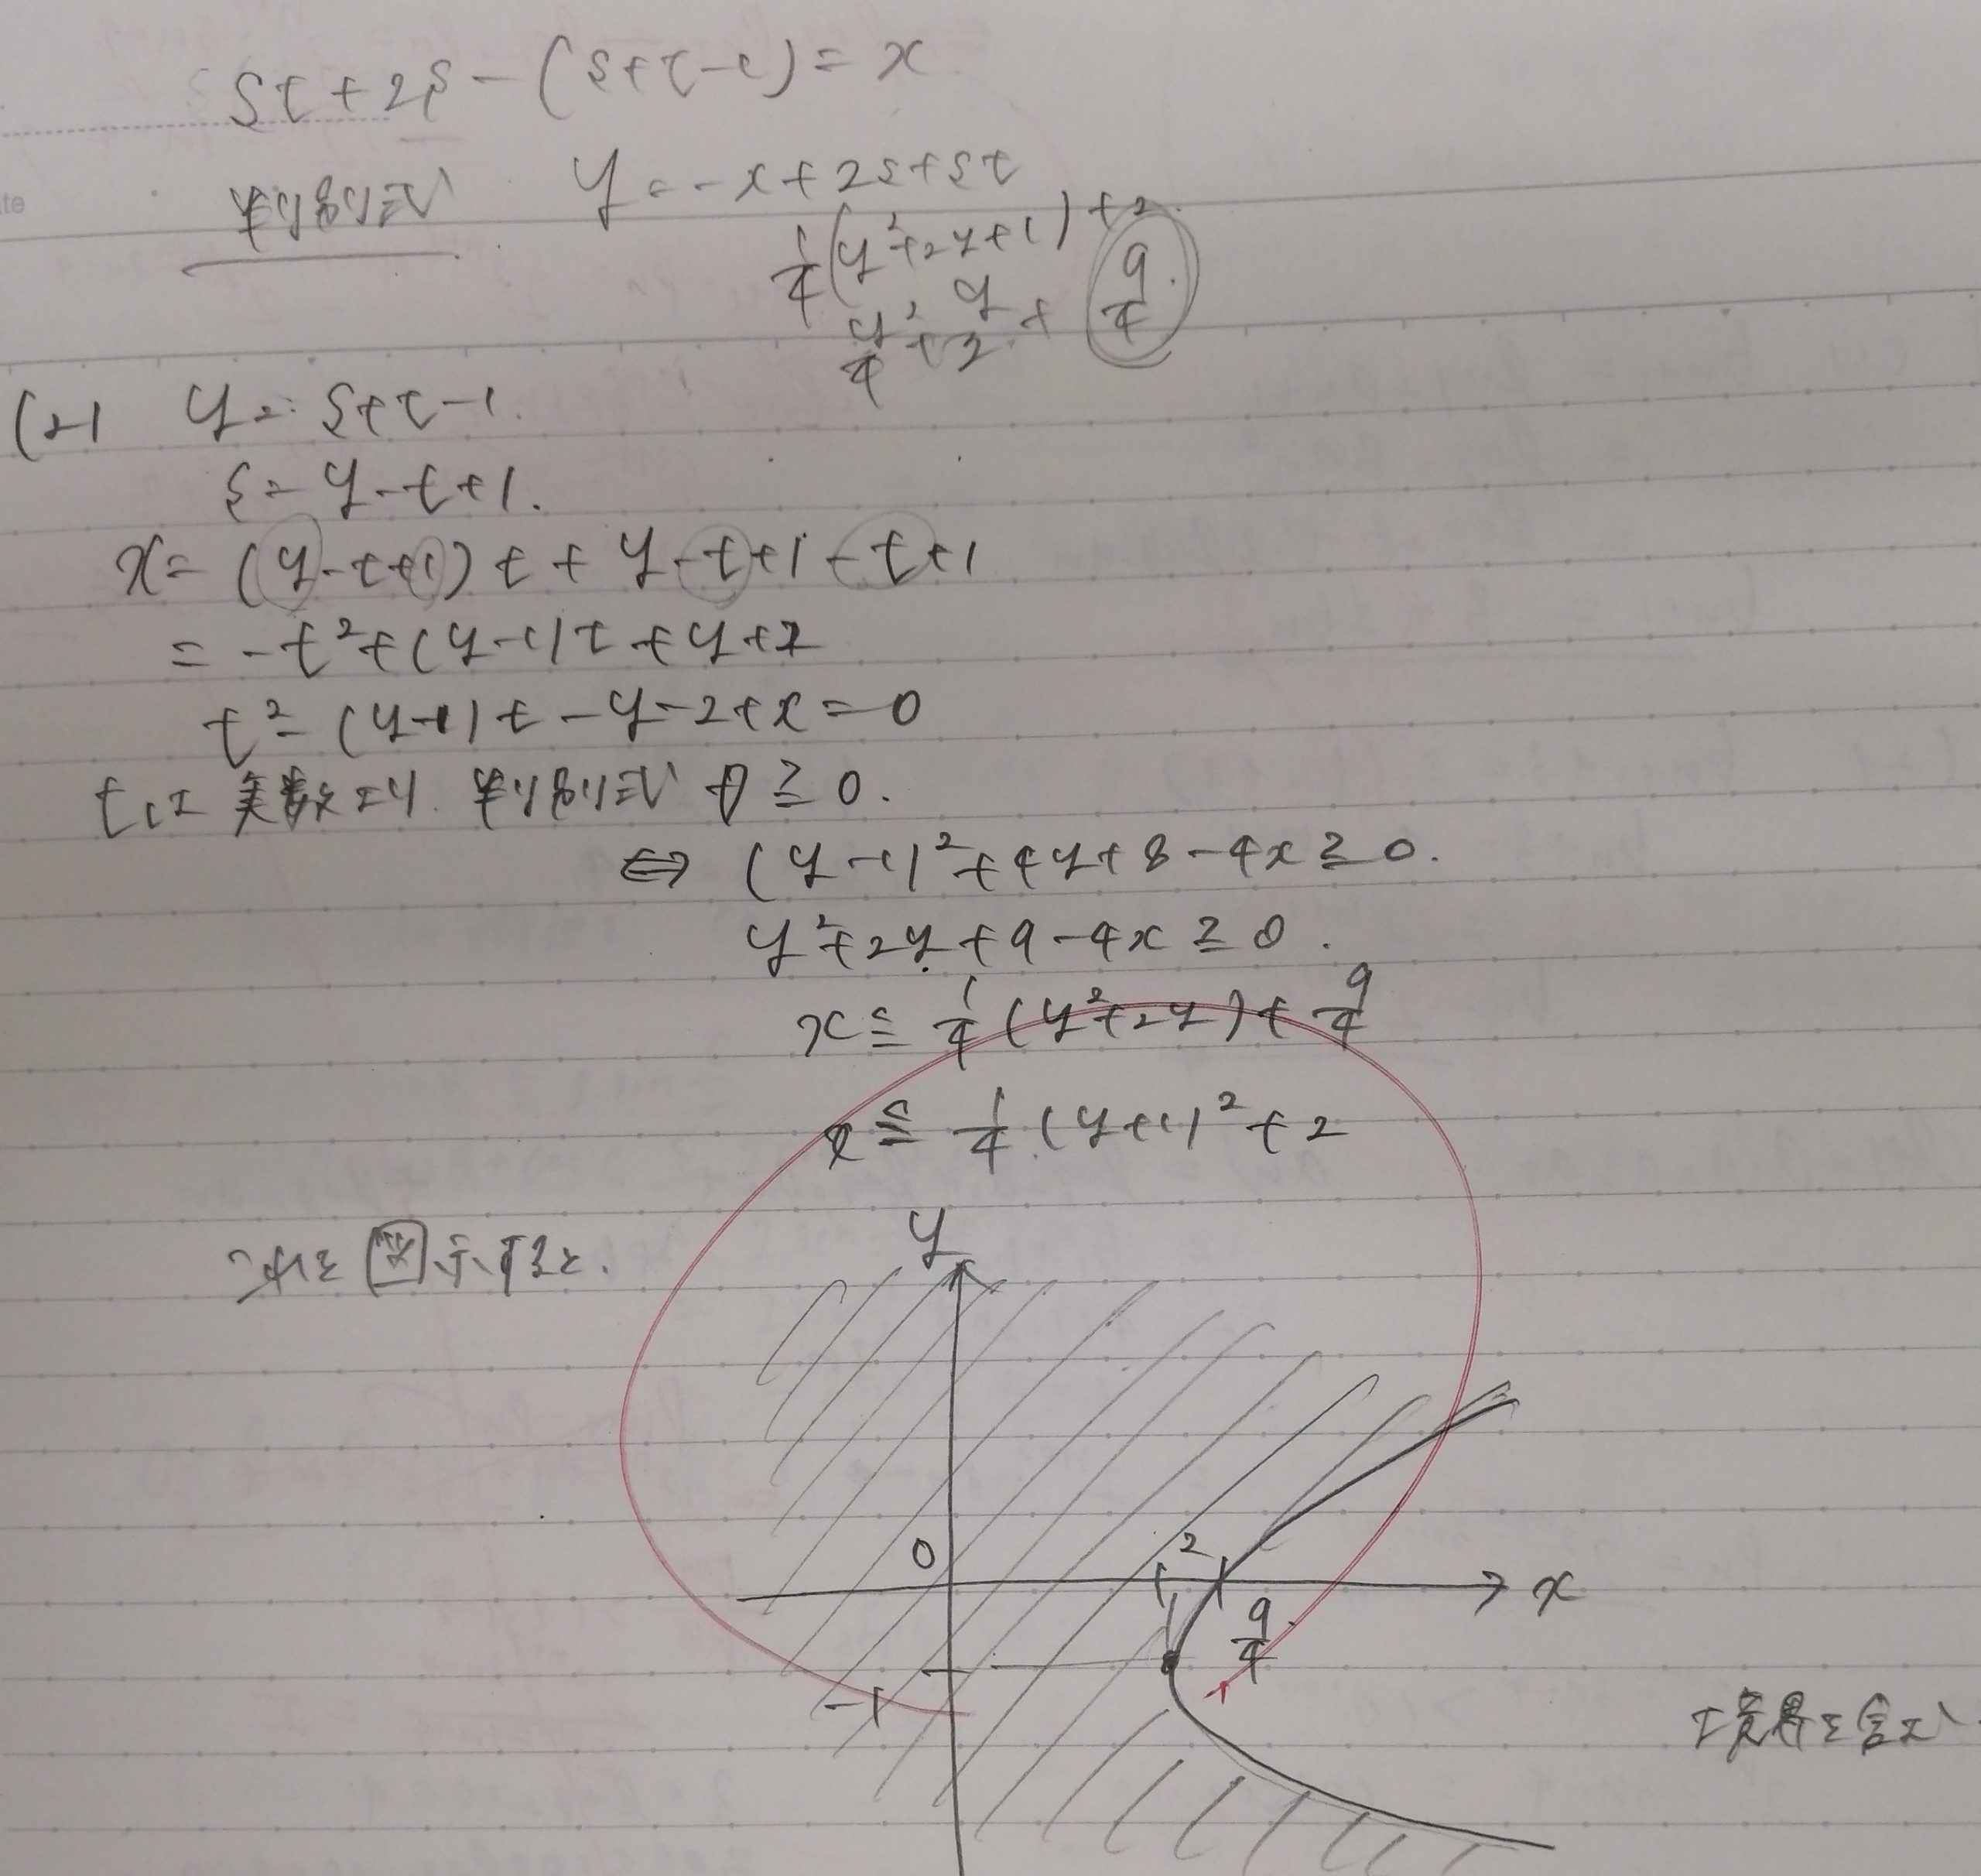 st+2s-(s+t-1)=x
判別式 y=-x+2s+st
1/4(y²+2y+1)+2
y²/4+y/2+9/4
(2) y=s+t-1.
s=y-t+1.
x=(y-t+1)t+y-t+1-t+1
=-t²+(y-1)t+y+2
t²-(y-1)t-y-2+x=0
tは実数より.判別式D≧0.
⇔(y-1)²+4y+8-4x≧0.
y²+2y+9-4x≧0.
x≦1/4(y²+2y)+9/4
x≦1/4(y+1)²+2
これを図示すると.
y
0
2
x
9/4
-1
境界を含む